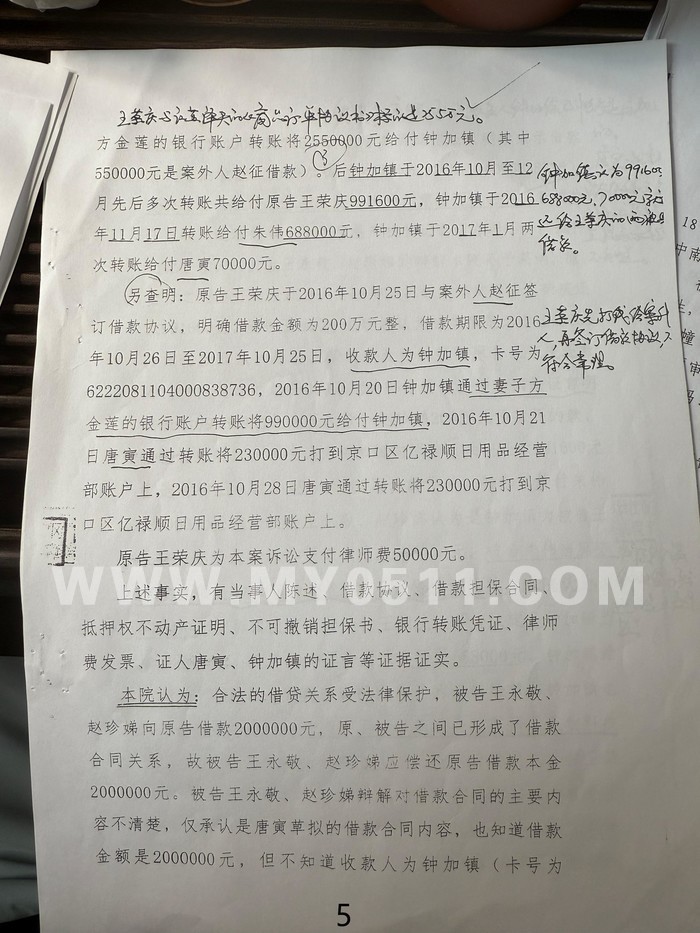 方金莲的银行账户转账将2550000元给付钟加镇（其中
550000元是案外人赵征借款）。后钟加镇于2016年10月至12
月先后多次转账共给付原告王荣庆991600元，钟加镇于2016
年11月17日转账给付朱伟688000元，钟加镇于2017年1月两
次转账给付唐寅70000元。
另查明：原告王荣庆于2016年10月25日与案外人赵征签
订借款协议，明确借款金额为200万元整，借款期限为2016
年10月26日至2017年10月25日，收款人为钟加镇，卡号为
6222081104000838736，2016年10月20日钟加镇通过妻子方
金莲的银行账户转账将990000元给付钟加镇，2016年10月21
日唐寅通过转账将230000元打到京口区亿禄顺日用品经营
部账户上，2016年10月28日唐寅通过转账将230000元打到京
口区亿禄顺日用品经营部账户上。
原告王荣庆为本案诉讼支付律师费50000元。
上述事实，有当事人陈述、借款协议、借款担保合同、
抵押权不动产证明、不可撤销担保书、银行转账凭证、律师
费发票、证人唐寅、钟加镇的证言等证据证实。
本院认为：合法的借贷关系受法律保护，被告王永敬、
赵珍娣向原告借款2000000元，原、被告之间已形成了借款
合同关系，故被告王永敬、赵珍娣应偿还原告借款本金
2000000元。被告王永敬、赵珍娣辩解对借款合同的主要内
容不清楚，仅承认是唐寅草拟的借款合同内容，也知道借款
金额是2000000元，但不知道收款人为钟加镇（卡号为
5
王荣庆先打钱给案外
人，再签订借款协议，不
符合常理。
WWW.MY0511.COM